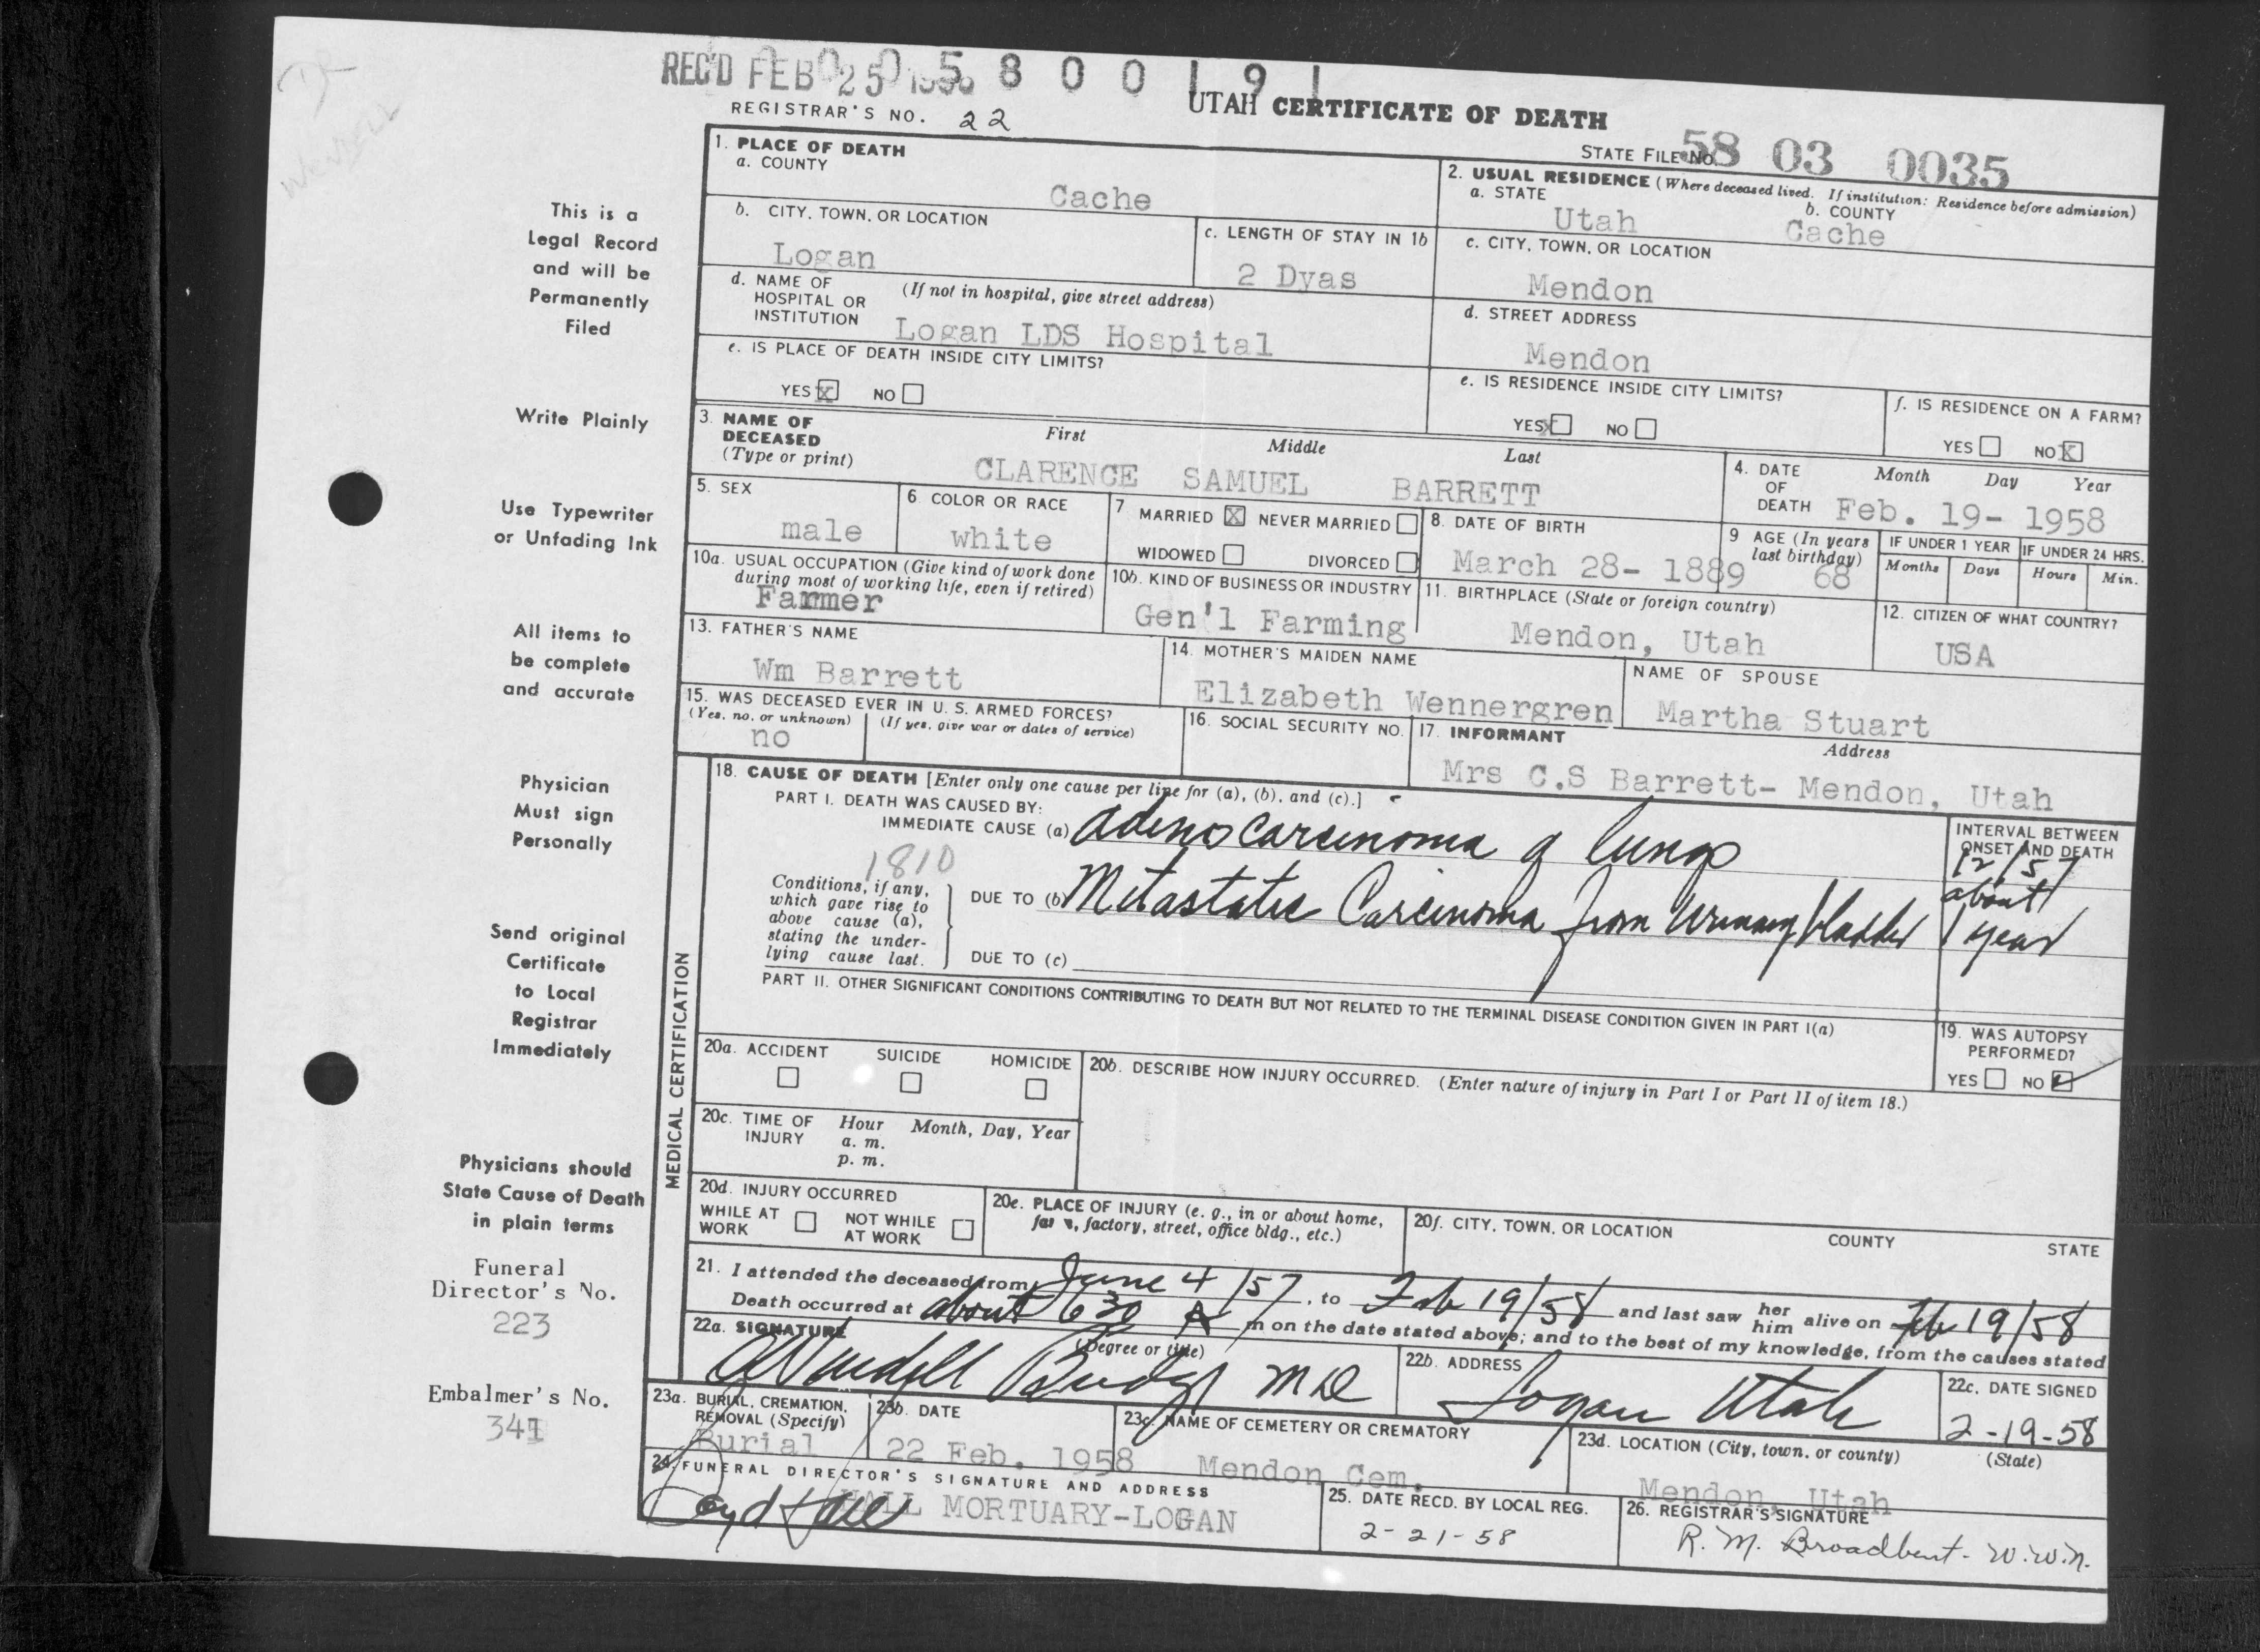 REC'D FEB 25 1958
0 0 5 8 0 0 1 9 1
REGISTRAR'S NO. 22
UTAH CERTIFICATE OF DEATH
STATE FILE NO. 58 03 0035
This is a
Legal Record
and will be
Permanently
Filed
Write Plainly
Use Typewriter
or Unfading Ink
All items to
be complete
and accurate
Physician
Must sign
Personally
Send original
Certificate
to Local
Registrar
Immediately
Physicians should
State Cause of Death
in plain terms
Funeral
Director's No.
223
Embalmer's No.
341
1. PLACE OF DEATH
a. COUNTY
Cache
b. CITY, TOWN, OR LOCATION
Logan
c. LENGTH OF STAY IN 1b
2 Dyas
d. NAME OF HOSPITAL OR INSTITUTION (If not in hospital, give street address)
Logan LDS Hospital
e. IS PLACE OF DEATH INSIDE CITY LIMITS?
YES X NO
2. USUAL RESIDENCE (Where deceased lived. If institution: Residence before admission)
a. STATE
Utah
b. COUNTY
Cache
c. CITY, TOWN, OR LOCATION
Mendon
d. STREET ADDRESS
Mendon
e. IS RESIDENCE INSIDE CITY LIMITS?
YES X NO
f. IS RESIDENCE ON A FARM?
YES NO X
3. NAME OF DECEASED (Type or print)
First Middle Last
CLARENCE SAMUEL BARRETT
4. DATE OF DEATH Month Day Year
Feb. 19- 1958
5. SEX
male
6. COLOR OR RACE
white
7 MARRIED X NEVER MARRIED
WIDOWED DIVORCED
8. DATE OF BIRTH
March 28- 1889
9 AGE (In years last birthday)
68
IF UNDER 1 YEAR
Months Days
IF UNDER 24 HRS.
Hours Min.
10a. USUAL OCCUPATION (Give kind of work done during most of working life, even if retired)
Farmer
10b. KIND OF BUSINESS OR INDUSTRY
Gen'l Farming
11. BIRTHPLACE (State or foreign country)
Mendon, Utah
12. CITIZEN OF WHAT COUNTRY?
USA
13. FATHER'S NAME
Wm Barrett
14. MOTHER'S MAIDEN NAME
Elizabeth Wennergren
NAME OF SPOUSE
Martha Stuart
15. WAS DECEASED EVER IN U. S. ARMED FORCES?
(Yes, no, or unknown) (If yes, give war or dates of service)
no
16. SOCIAL SECURITY NO.
17. INFORMANT Address
Mrs C.S Barrett- Mendon, Utah
MEDICAL CERTIFICATION
18. CAUSE OF DEATH [Enter only one cause per line for (a), (b), and (c).]
PART I. DEATH WAS CAUSED BY:
IMMEDIATE CAUSE (a) adenocarcinoma of lungs
1810
Conditions, if any, which gave rise to above cause (a), stating the underlying cause last.
DUE TO (b) Metastatic Carcinoma from urinary bladder
DUE TO (c)
INTERVAL BETWEEN ONSET AND DEATH
12/57
about
1 year
PART II. OTHER SIGNIFICANT CONDITIONS CONTRIBUTING TO DEATH BUT NOT RELATED TO THE TERMINAL DISEASE CONDITION GIVEN IN PART I(a)
19. WAS AUTOPSY PERFORMED?
YES NO ✓
20a. ACCIDENT SUICIDE HOMICIDE
20b. DESCRIBE HOW INJURY OCCURRED. (Enter nature of injury in Part I or Part II of item 18.)
20c. TIME OF INJURY Hour a. m. p. m. Month, Day, Year
20d. INJURY OCCURRED
WHILE AT WORK NOT WHILE AT WORK
20e. PLACE OF INJURY (e. g., in or about home, farm, factory, street, office bldg., etc.)
20f. CITY, TOWN, OR LOCATION COUNTY STATE
21. I attended the deceased from June 4/57, to Feb 19/58 and last saw her him alive on Feb 19/58
Death occurred at about 6 30 A m on the date stated above; and to the best of my knowledge, from the causes stated
22a. SIGNATURE (Degree or title)
O Wendell Budge MD
22b. ADDRESS
Logan Utah
22c. DATE SIGNED
2-19-58
23a. BURIAL, CREMATION, REMOVAL (Specify)
Burial
23b. DATE
22 Feb. 1958
23c. NAME OF CEMETERY OR CREMATORY
Mendon Cem.
23d. LOCATION (City, town, or county) (State)
Mendon, Utah
24. FUNERAL DIRECTOR'S SIGNATURE AND ADDRESS
HALL MORTUARY-LOGAN
25. DATE RECD. BY LOCAL REG.
2-21-58
26. REGISTRAR'S SIGNATURE
R. M. Broadbent- W.W.N.